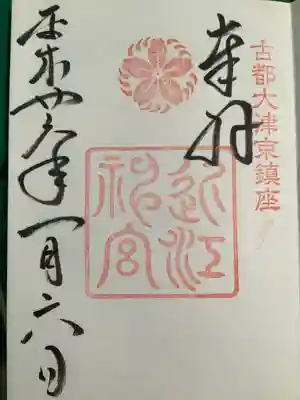 古都大津京鎮座
奉拝
近江
神宮
年一月六日